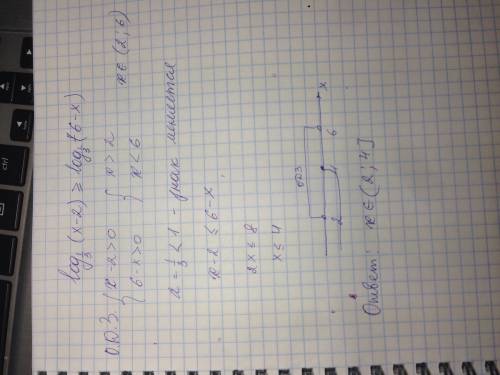 log₃(x-2) ≥ log₃(6-x)
О.Д.З. { x-2>0 { x>2
{ 6-x>0 { x<6 x∈(2;6)
a = 1/3 < 1 - знак меняется
x-2 ≤ 6-x
2x ≤ 8
x ≤ 4
ОДЗ
2 4 6 x
Ответ: x∈(2;4]
ctrl